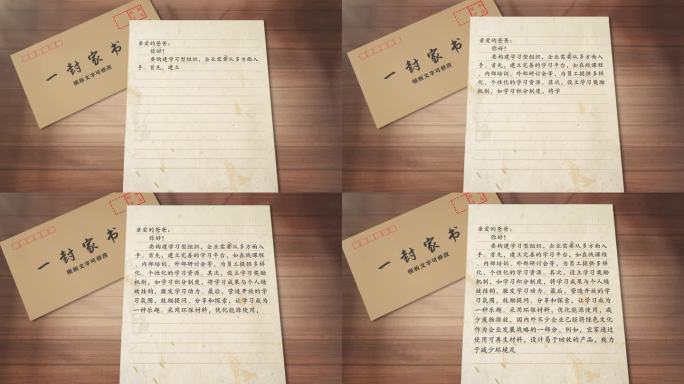 一封家书
模板文字可修改
亲爱的爸爸：
你好！
要构建学习型组织，企业需要从多方面入
手。首先，建立
一封家书
模板文字可修改
亲爱的爸爸：
你好！
要构建学习型组织，企业需要从多方面入
手。首先，建立完善的学习平台，如在线课程
、内部培训、外部研讨会等，为员工提供多样
化、个性化的学习资源。其次，设立学习奖励
机制，如学习积分制度，将学
一封家书
模板文字可修改
亲爱的爸爸：
你好！
要构建学习型组织，企业需要从多方面入
手。首先，建立完善的学习平台，如在线课程
、内部培训、外部研讨会等，为员工提供多样
化、个性化的学习资源。其次，设立学习奖励
机制，如学习积分制度，将学习成果与个人绩
效挂钩，激发学习动力。最后，营造开放的学
习氛围，鼓励提问、分享和探索，让学习成为
一种乐趣。采用环保材料，优化能源使用，
一封家书
模板文字可修改
亲爱的爸爸：
你好！
要构建学习型组织，企业需要从多方面入
手。首先，建立完善的学习平台，如在线课程
、内部培训、外部研讨会等，为员工提供多样
化、个性化的学习资源。其次，设立学习奖励
机制，如学习积分制度，将学习成果与个人绩
效挂钩，激发学习动力。最后，营造开放的学
习氛围，鼓励提问、分享和探索，让学习成为
一种乐趣。采用环保材料，优化能源使用，减
少废物排放，国内外不少企业已经将绿色文化
作为企业发展战略的一部分。例如，宜家通过
使用可再生材料，设计易于回收的产品，致力
于减少环境足